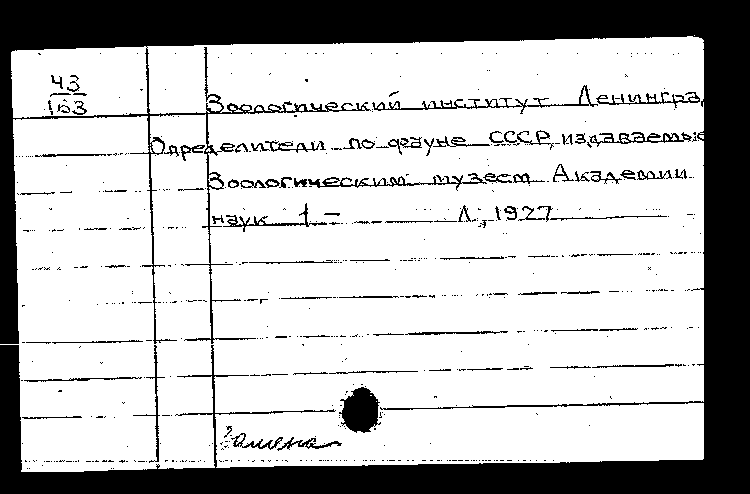 43
163
Зоологический институт Ленингра
Определители по фауне СССР, издаваемые
Зоологическим музеем Академии
наук 1 – Л., 1927
Замена